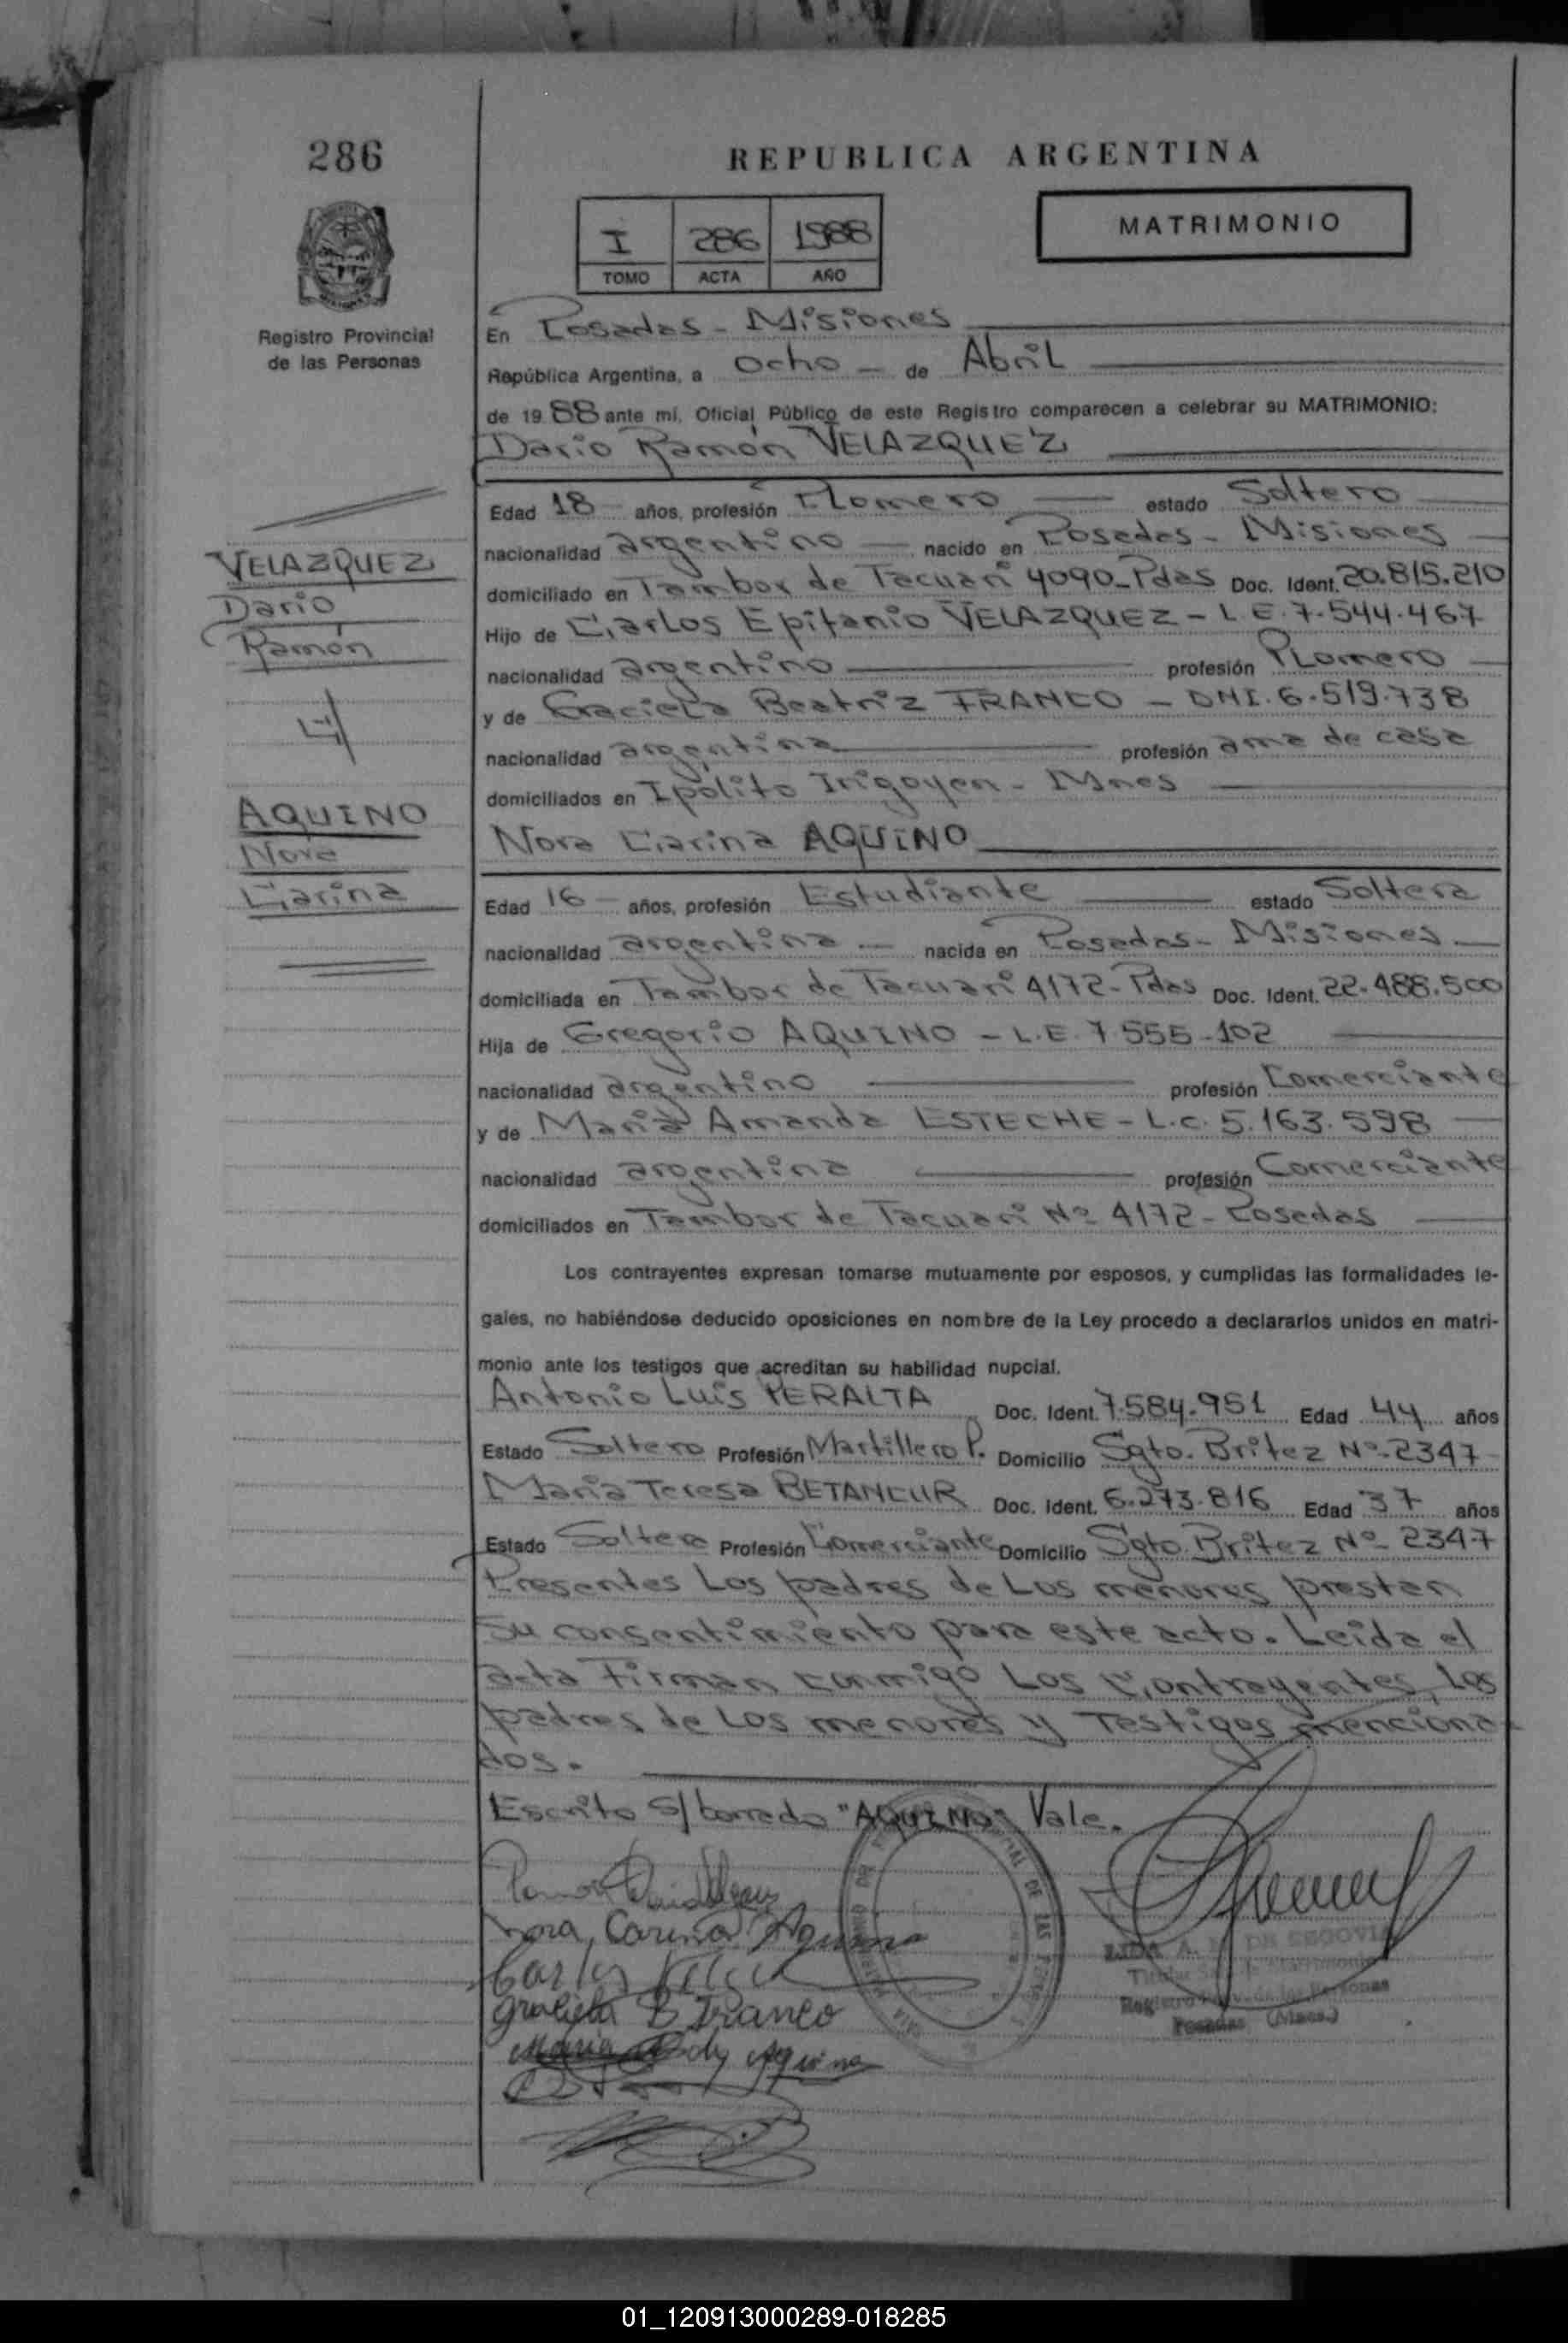 286
REPUBLICA ARGENTINA
I 286 1988
TOMO ACTA AÑO
MATRIMONIO
Registro Provincial
de las Personas
En Posadas - Misiones
República Argentina, a Ocho - de Abril
de 1988 ante mí, Oficial Público de este Registro comparecen a celebrar su MATRIMONIO:
Dario Ramón VELAZQUEZ
Edad 18 años, profesión Plomero estado Soltero
nacionalidad argentino nacido en Posadas - Misiones
domiciliado en Tambor de Tacuarí 4090 - Pdas Doc. Ident. 20.815.210
Hijo de Carlos Epifanio VELAZQUEZ - L.E. 7.544.467
nacionalidad argentino profesión PLomero
y de Graciela Beatríz FRANCO - DNI. 6.519.738
nacionalidad argentina profesión ama de casa
domiciliados en Ipólito Irigoyen - Mnes
Nora Carina AQUINO
Edad 16 años, profesión Estudiante estado Soltera
nacionalidad argentina - nacida en Posadas - Misiones
domiciliada en Tambor de Tacuarí 4172 - Pdas Doc. Ident. 22.488.500
Hija de Gregorio AQUINO - L.E. 7.555.102
nacionalidad argentino profesión Comerciante
y de María Amanda ESTECHE - L.C. 5.163.598
nacionalidad argentina profesión Comerciante
domiciliados en Tambor de Tacuarí Nº 4172 - Posadas
VELAZQUEZ
Dario
Ramón
y
AQUINO
Nora
Carina
Los contrayentes expresan tomarse mutuamente por esposos, y cumplidas las formalidades le-
gales, no habiéndose deducido oposiciones en nombre de la Ley procedo a declararlos unidos en matri-
monio ante los testigos que acreditan su habilidad nupcial.
Antonio Luis PERALTA Doc. Ident. 7.584.951 Edad 44 años
Estado Soltero Profesión Martillero P. Domicilio Sgto. Britez Nº 2347
María Teresa BETANCUR Doc. Ident. 6.273.816 Edad 37 años
Estado Soltera Profesión Comerciante Domicilio Sgto. Britez Nº 2347
Presentes Los padres de Los menores prestan
su consentimiento para este acto. Leida el
acta Firman conmigo Los Contrayentes, los
padres de Los menores y Testigos menciona-
dos.
Escrito s/ borrado "AQUINO" Vale.
Nora Carina Aquino
Carlos
Graciela B Franco
LIDA A. DE SEGOVIA
Posadas (Mnes.)
01_120913000289-018285